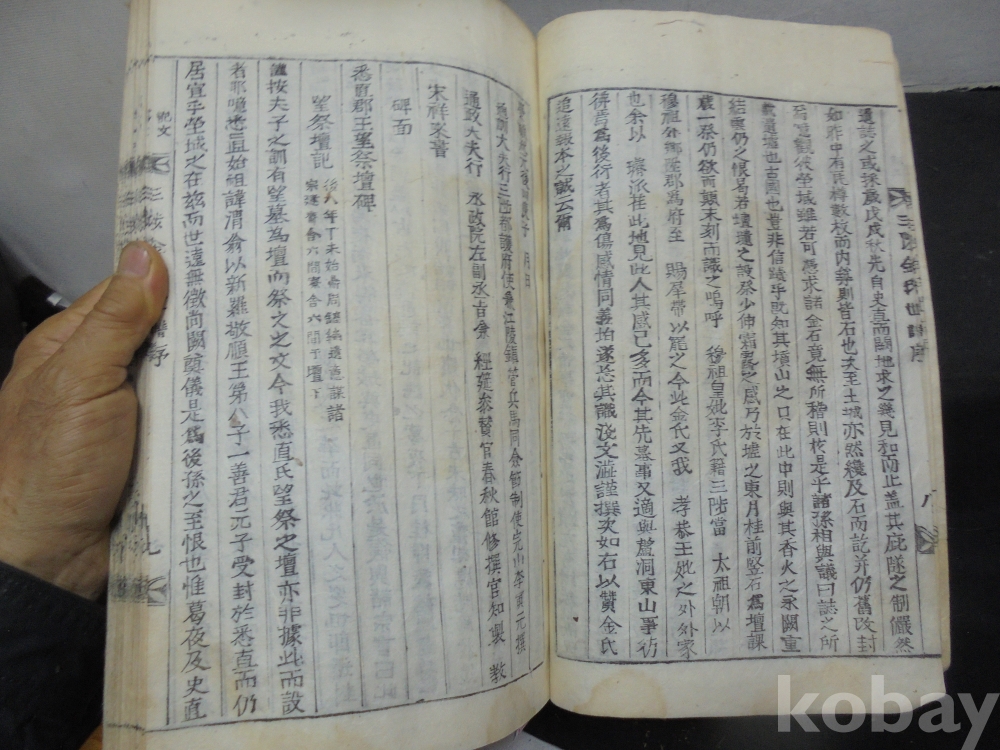 遺誌之或採歲戊戌秋先自史直而閪地求之幾見和而止盖其庇隧之制儼然
如昨中有民樽數枚而內旁則皆石也大至土城亦然纔及石而訖并仍舊改封
噫遠觀彼塋域雖若可憑求諸金石竟無所稽則於是乎諸孫相與議曰誌之所
載遺墟也古圖也豈非信蹟乎既知其墳山之 在此中則與其香火之永闕重
結 仍之恨曷若壇墠之設祭少伸霜露之感乃於墟之東月桂前竪石爲壇謀
歲一祭仍欲両顚末刻而識之嗚呼 穆祖皇妣李氏籍三陟當 太祖朝以
穆祖外鄕陞郡爲府至 賜犀帶以寵之今此金氏又我 孝恭王妣之外外家
也余以 璿派 此地見此人其感已多而今其先墓事又適與蘆洞東山事彷
彿 爲後行者其爲傷感情同義均遂忘其識淺文澁謹撰次如右以贊金氏
追遠報本之誠云爾
通訓大夫行三陟都護府使兼江陵鎭管兵馬同僉節制使完山李 元 撰
通政大夫行 承政院左副丞旨兼 經筵參贊官春秋館修撰官知製 敎
宋祥來書
碑面
悉直郡王望祭壇碑
望祭壇記
後八年丁未始 局 編 遺 諜諸
宗 六間齋舍六間于壇下
謹按夫子之訓有望墓爲壇而祭之之文今我悉直氏望祭之壇亦非據此而設
者耶噫悉直始祖諱渭翁以新羅敬順王第八子一善君元子受封於悉直而仍
居宜乎塋域之在玆而世遠無徵尙闕奠儀是爲後孫之至恨也惟葛夜及史直
記文
九
八
kobay